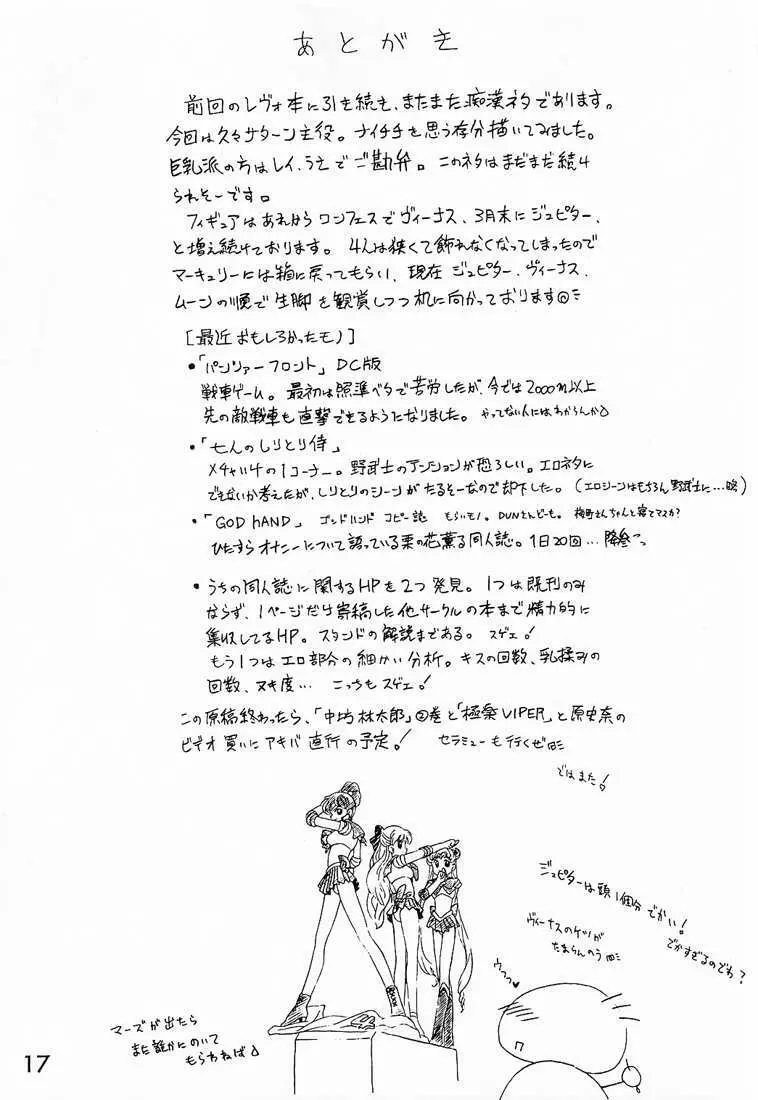 あとがき
前回のレヴォ本に引き続き、またまた痴漢ネタであります。
今回は久々サターン主役。ナイチチを思う存分描いてみました。
巨乳派の方はレイ、うえでご勘弁。このネタはまだまだ続け
られそーです。
フィギュアはあれから ワンフェスでヴィーナス、3月末にジュピター、
と増え続けております。 4人は狭くて飾れなくなってしまったので
マーキュリーには箱に戻ってもらい、現在 ジュピター、ヴィーナス、
ムーンの順で生脚を観賞しつつ机に向かっております
[最近おもしろかったモノ]
• 「パンツァーフロント」 DC版
戦車ゲーム。最初は照準ベタで苦労したが、今では2000m以上
先の敵戦車も直撃できるようになりました。 やってない人にはわからんか
• 「七人のしりとり侍」
メチャイケの1コーナー。野武士のテンションが恐ろしい。エロネタに
できないか考えたが、しりとりのシーンがたるそーなので却下した。 (エロシーンはもちろん野武士に…略)
• 「GOD HAND」 ゴッドハンド コピー誌 もらいモノ。DUNさんどーも。 ちゃんと寝てマスか?
ひたすらオナニーについて語っている栗の花薫る同人誌。1日20回…降参
• うちの同人誌に関するHPを2つ発見。1つは既刊のみ
ならず、1ページだけ寄稿した他サークルの本まで精力的に
集収してるHP。スタンドの解説まである。 スゲエ!
もう1つはエロ部分の細かい分析。キスの回数、乳揉みの
回数、ヌキ度… こっちもスゲエ!
この原稿終わったら、「中坊林太郎」②巻と「極楽VIPER」と原史奈の
ビデオ買いにアキバ直行の予定! セラミューも行くぜ
ではまた!
ジュピターは頭1個分でかい!
でかすぎるのでわ?
ヴィーナスのケツが
たまらんのう
ウウっ
マーズが出たら
また誰かにのいて
もらわねば
17